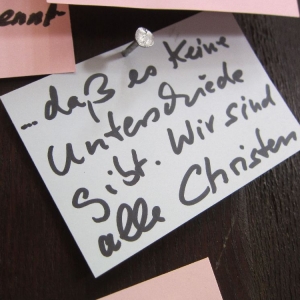 ...daß es keine
Unterschiede
gibt. Wir sind
alle Christen